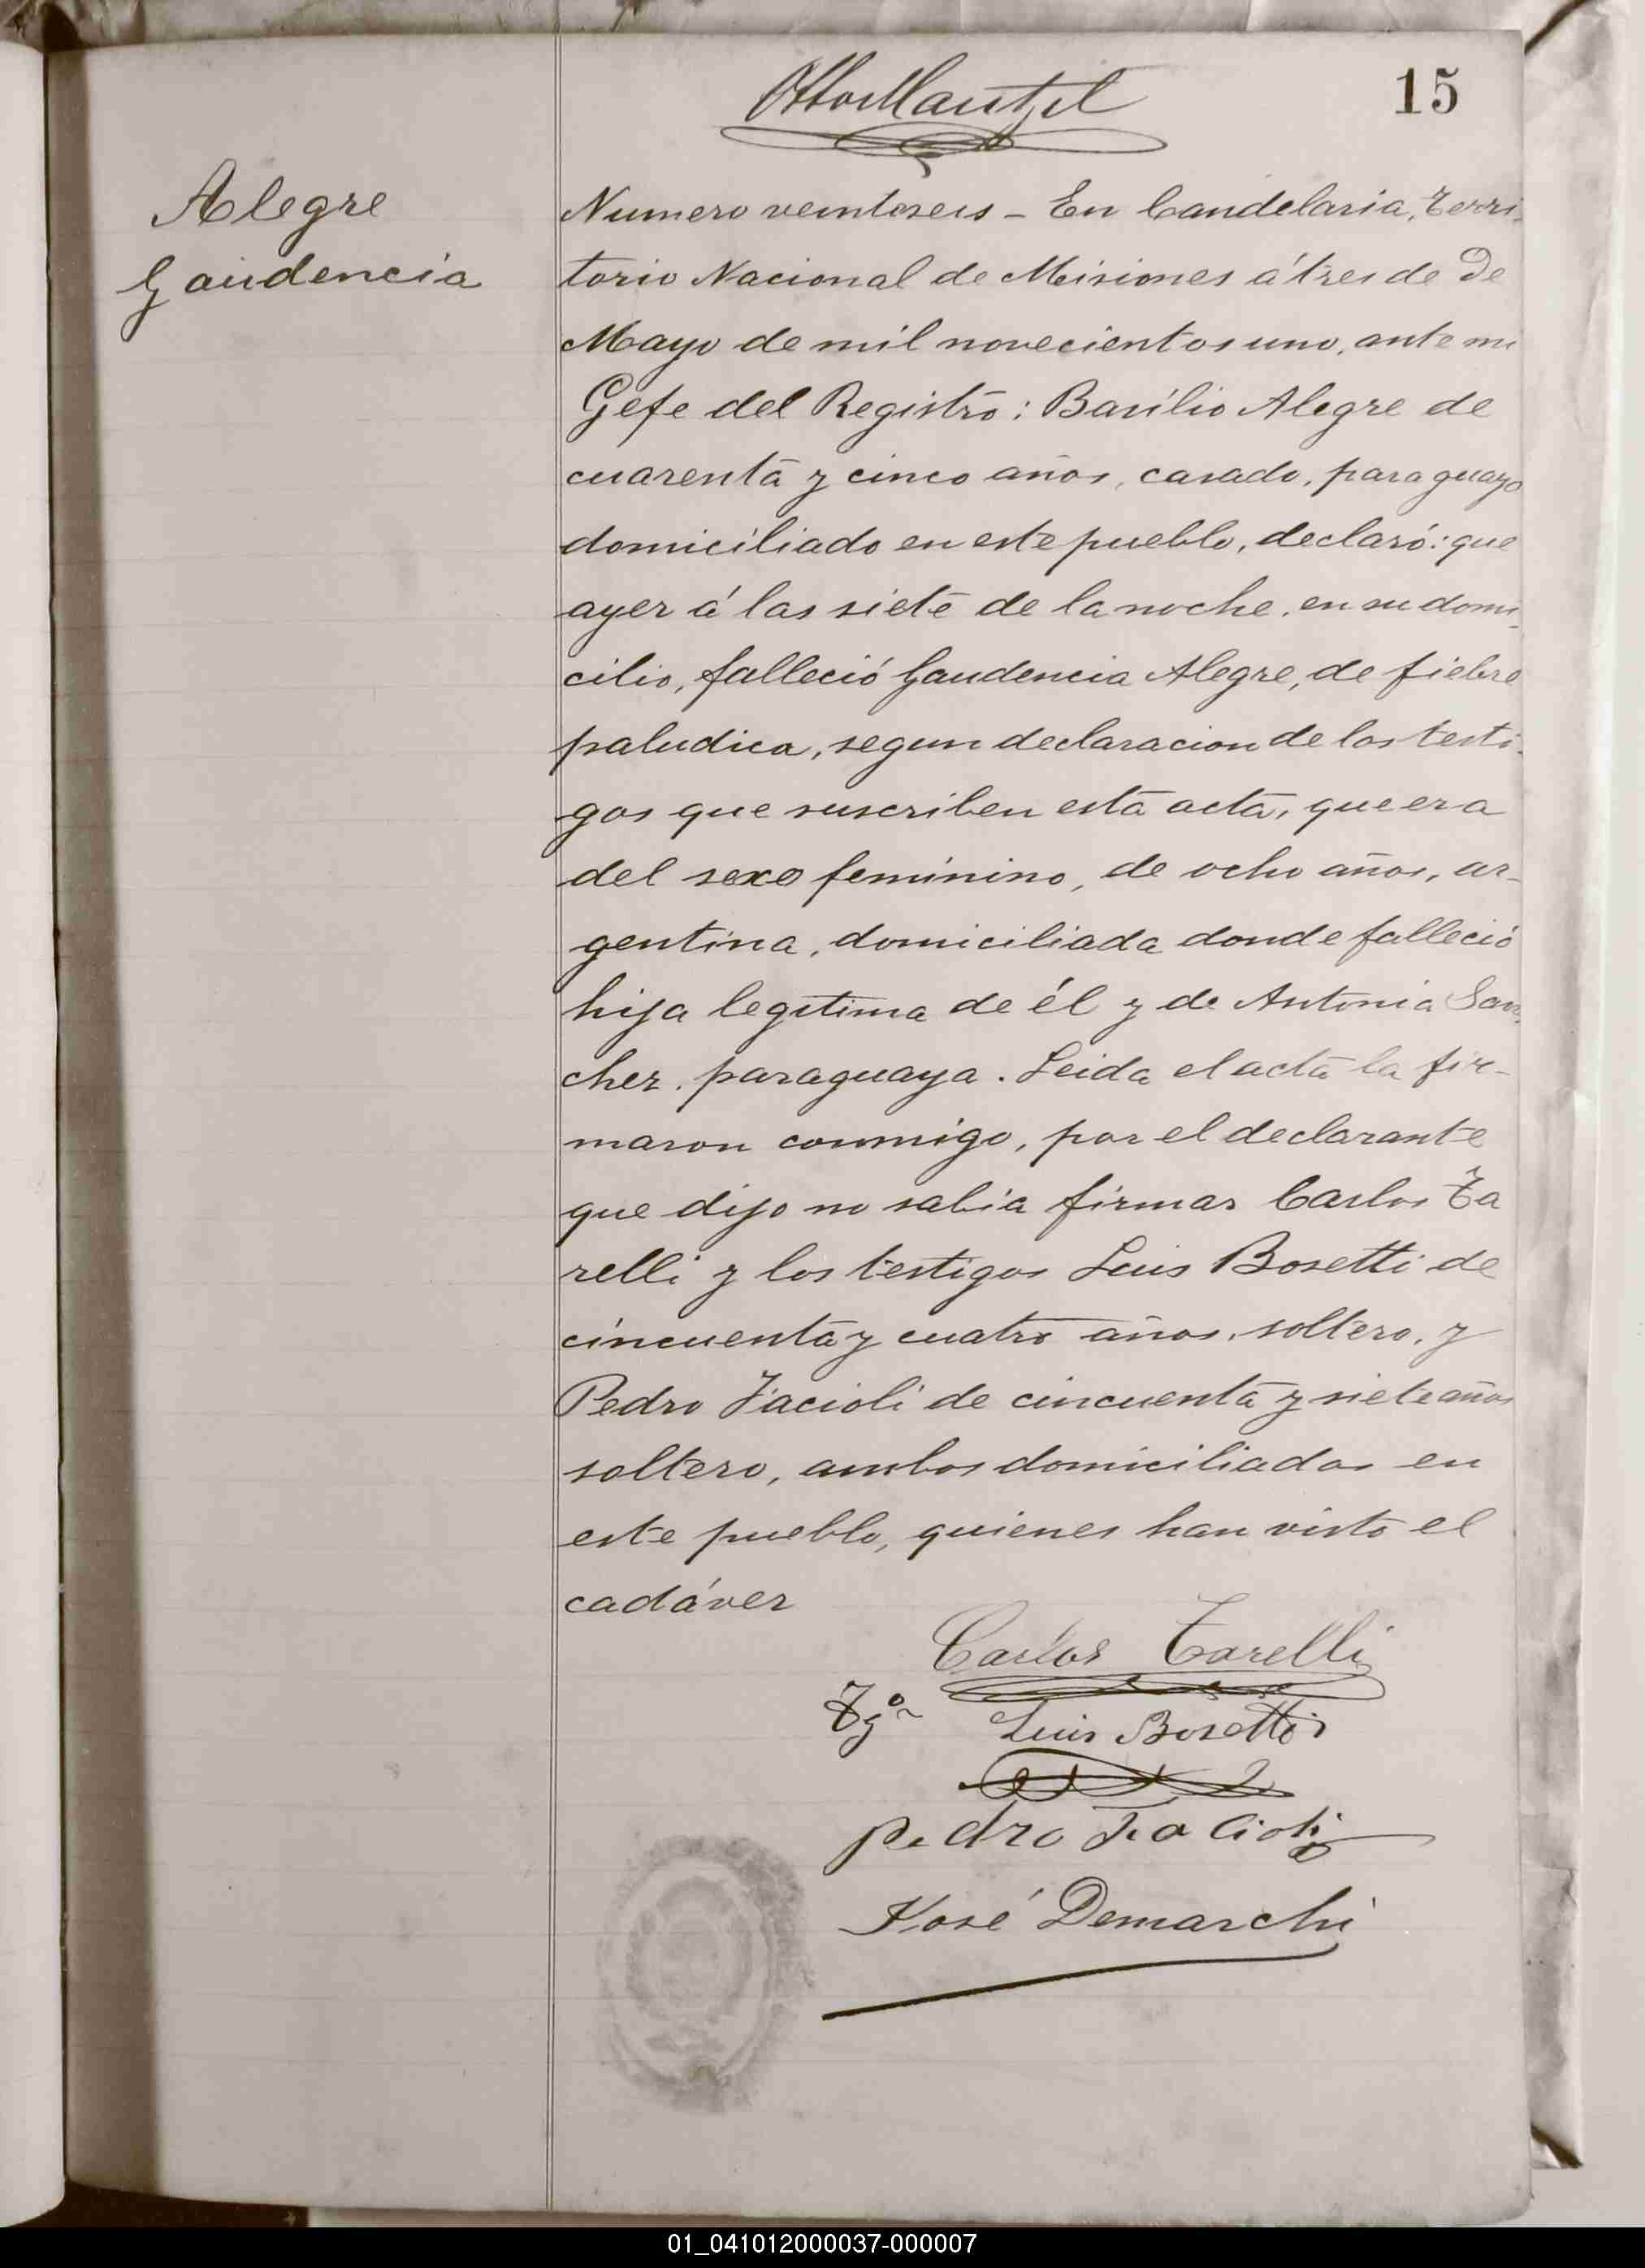 Otto Mantzel
15
Alegre
Gaudencia
Numero veintiseis - En Candelaria, Terri-
torio Nacional de Misiones á tres de De
Mayo de mil novecientos uno, ante mi
Gefe del Registro: Basilio Alegre de
cuarenta y cinco años, casado, paraguayo
domiciliado en este pueblo, declaró: que
ayer á las siete de la noche, en su domi-
cilio, falleció Gaudencia Alegre, de fiebre
paludica, segun declaracion de los testi-
gos que suscriben esta acta, que era
del sexo feminino, de ocho años, ar-
gentina, domiciliada donde falleció
hija legitima de él y de Antonia San-
chez, paraguaya. Leida el acta la fir-
maron conmigo, por el declarante
que dijo no sabia firmar Carlos Ta
relli y los testigos Luis Bosetti de
cincuenta y cuatro años, soltero, y
Pedro Facioli de cincuenta y siete años
soltero, ambos domiciliados en
este pueblo, quienes han visto el
cadáver
Carlos Tarelli
Tgo Luis Bosetti
Pedro Facioli
José Demarchi
01_041012000037-000007